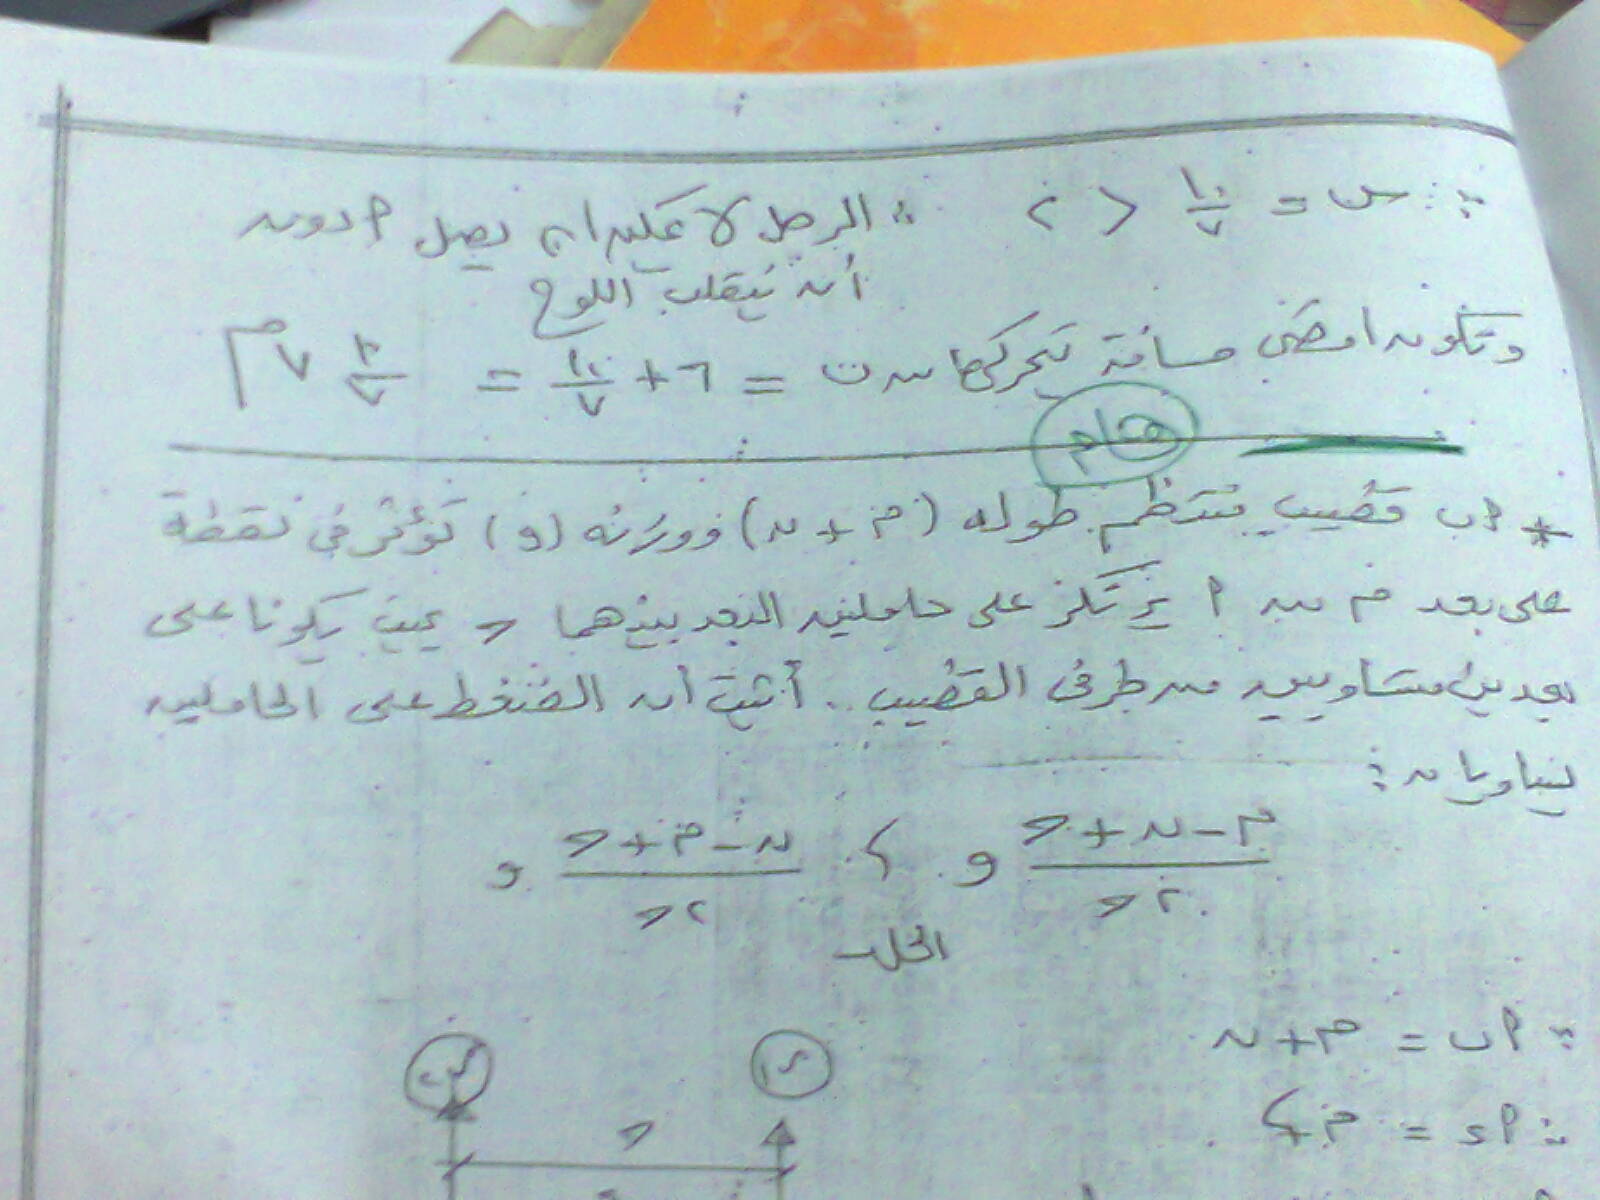 ∴ س = ١٠/٧ < ٢ ∴ الرجل لا يمكنه أن يصل ٢ دون
أن ينقلب اللوح
وتكون أقصى مسافة يتحركها من ب = ٦ + ١٠/٧ = ٣/٧ ٧ م
هام
* ٢ب قضيب منتظم طوله (م + ن) ووزنه (و) تؤثر فى نقطة
على بعد م من ٢ يرتكز على حاملين البعد بينهما ح بحيث يكونا على
بعدين متساويين من طرفى القضيب .. أثبت أن الضغط على الحاملين
يساويان :
(م - ن + ح)/(٢ح) و ، (ن - م + ح)/(٢ح) و
الحل
∵ ٢ب = م + ن
∵ ٢ء = م ،
ح